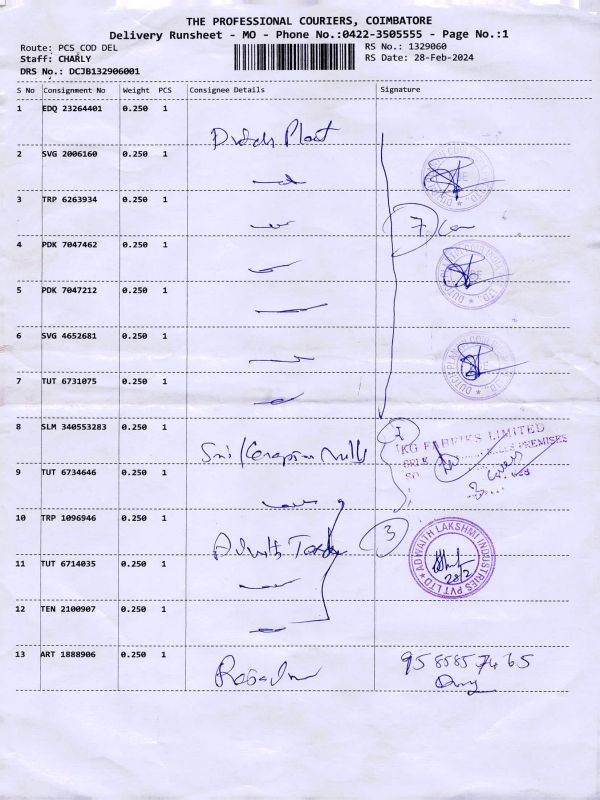 THE PROFESSIONAL COURIERS, COIMBATORE
Delivery Runsheet - MO - Phone No.:0422-3505555 - Page No.:1
Route: PCS COD DEL
RS No.: 1329060
Staff: CHARLY
RS Date: 28-Feb-2024
DRS No.: DCJB132906001
S No Consignment No Weight PCS Consignee Details Signature
1 EDQ 23264401 0.250 1
2 SVG 2006160 0.250 1
3 TRP 6263934 0.250 1
7
4 PDK 7047462 0.250 1
5 PDK 7047212 0.250 1
6 SVG 4652681 0.250 1
7 TUT 6731075 0.250 1
8 SLM 340553283 0.250 1
KG FABRICS LIMITED
PREMISES
9 TUT 6734646 0.250 1
3 Covers
10 TRP 1096946 0.250 1
3
ADWAITH LAKSHMI INDUSTRIES PVT LTD
28/2
11 TUT 6714035 0.250 1
12 TEN 2100907 0.250 1
13 ART 1888906 0.250 1